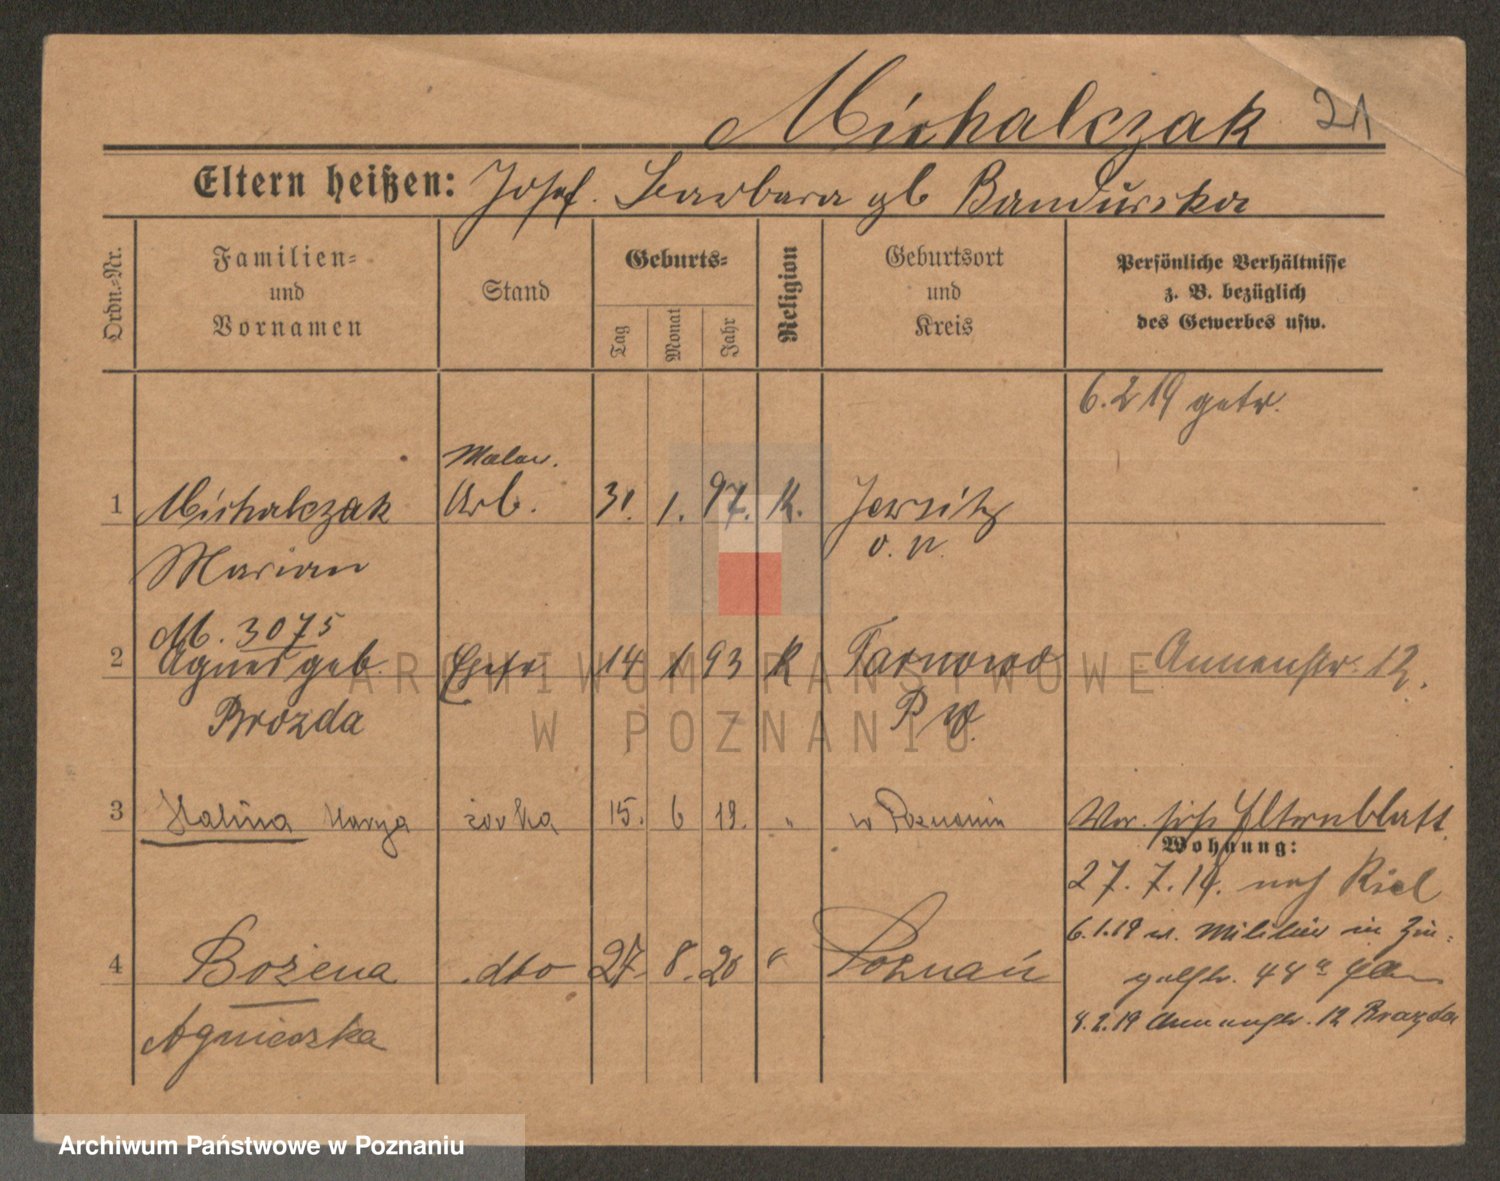 Michalczak 21
Eltern heißen: Josef. Barbara gb Bandurska
Ordn.-Nr.
Familien-
und
Vornamen
Stand
Geburts-
Tag
Monat
Jahr
Religion
Geburtsort
und
Kreis
Persönliche Verhältnisse
z. B. bezüglich
des Gewerbes usw.
6.2 19 getr.
Maler.
1 Michalczak Arb. 31. 1. 97. K. Jersitz
Marian o. n.
M. 3075
2 Agnes geb. Ehefr 14 1 93 K Tarnowo Annenstr. 12.
Brozda P. W.
3 Halina Marya córka 15. 6 19. " w Poznaniu Vor. siehe Elternblatt
Wohnung:
27. 7. 14. nach Kiel
6.1.19 v. Militär in Zin-
4 Bożena dto 27. 8. 20 " Poznań
Agnieszka
gelstr. 44a
8.2.19 Annenstr. 12 Brozda
ARCHIWUM PAŃSTWOWE
W POZNANIU
Archiwum Państwowe w Poznaniu